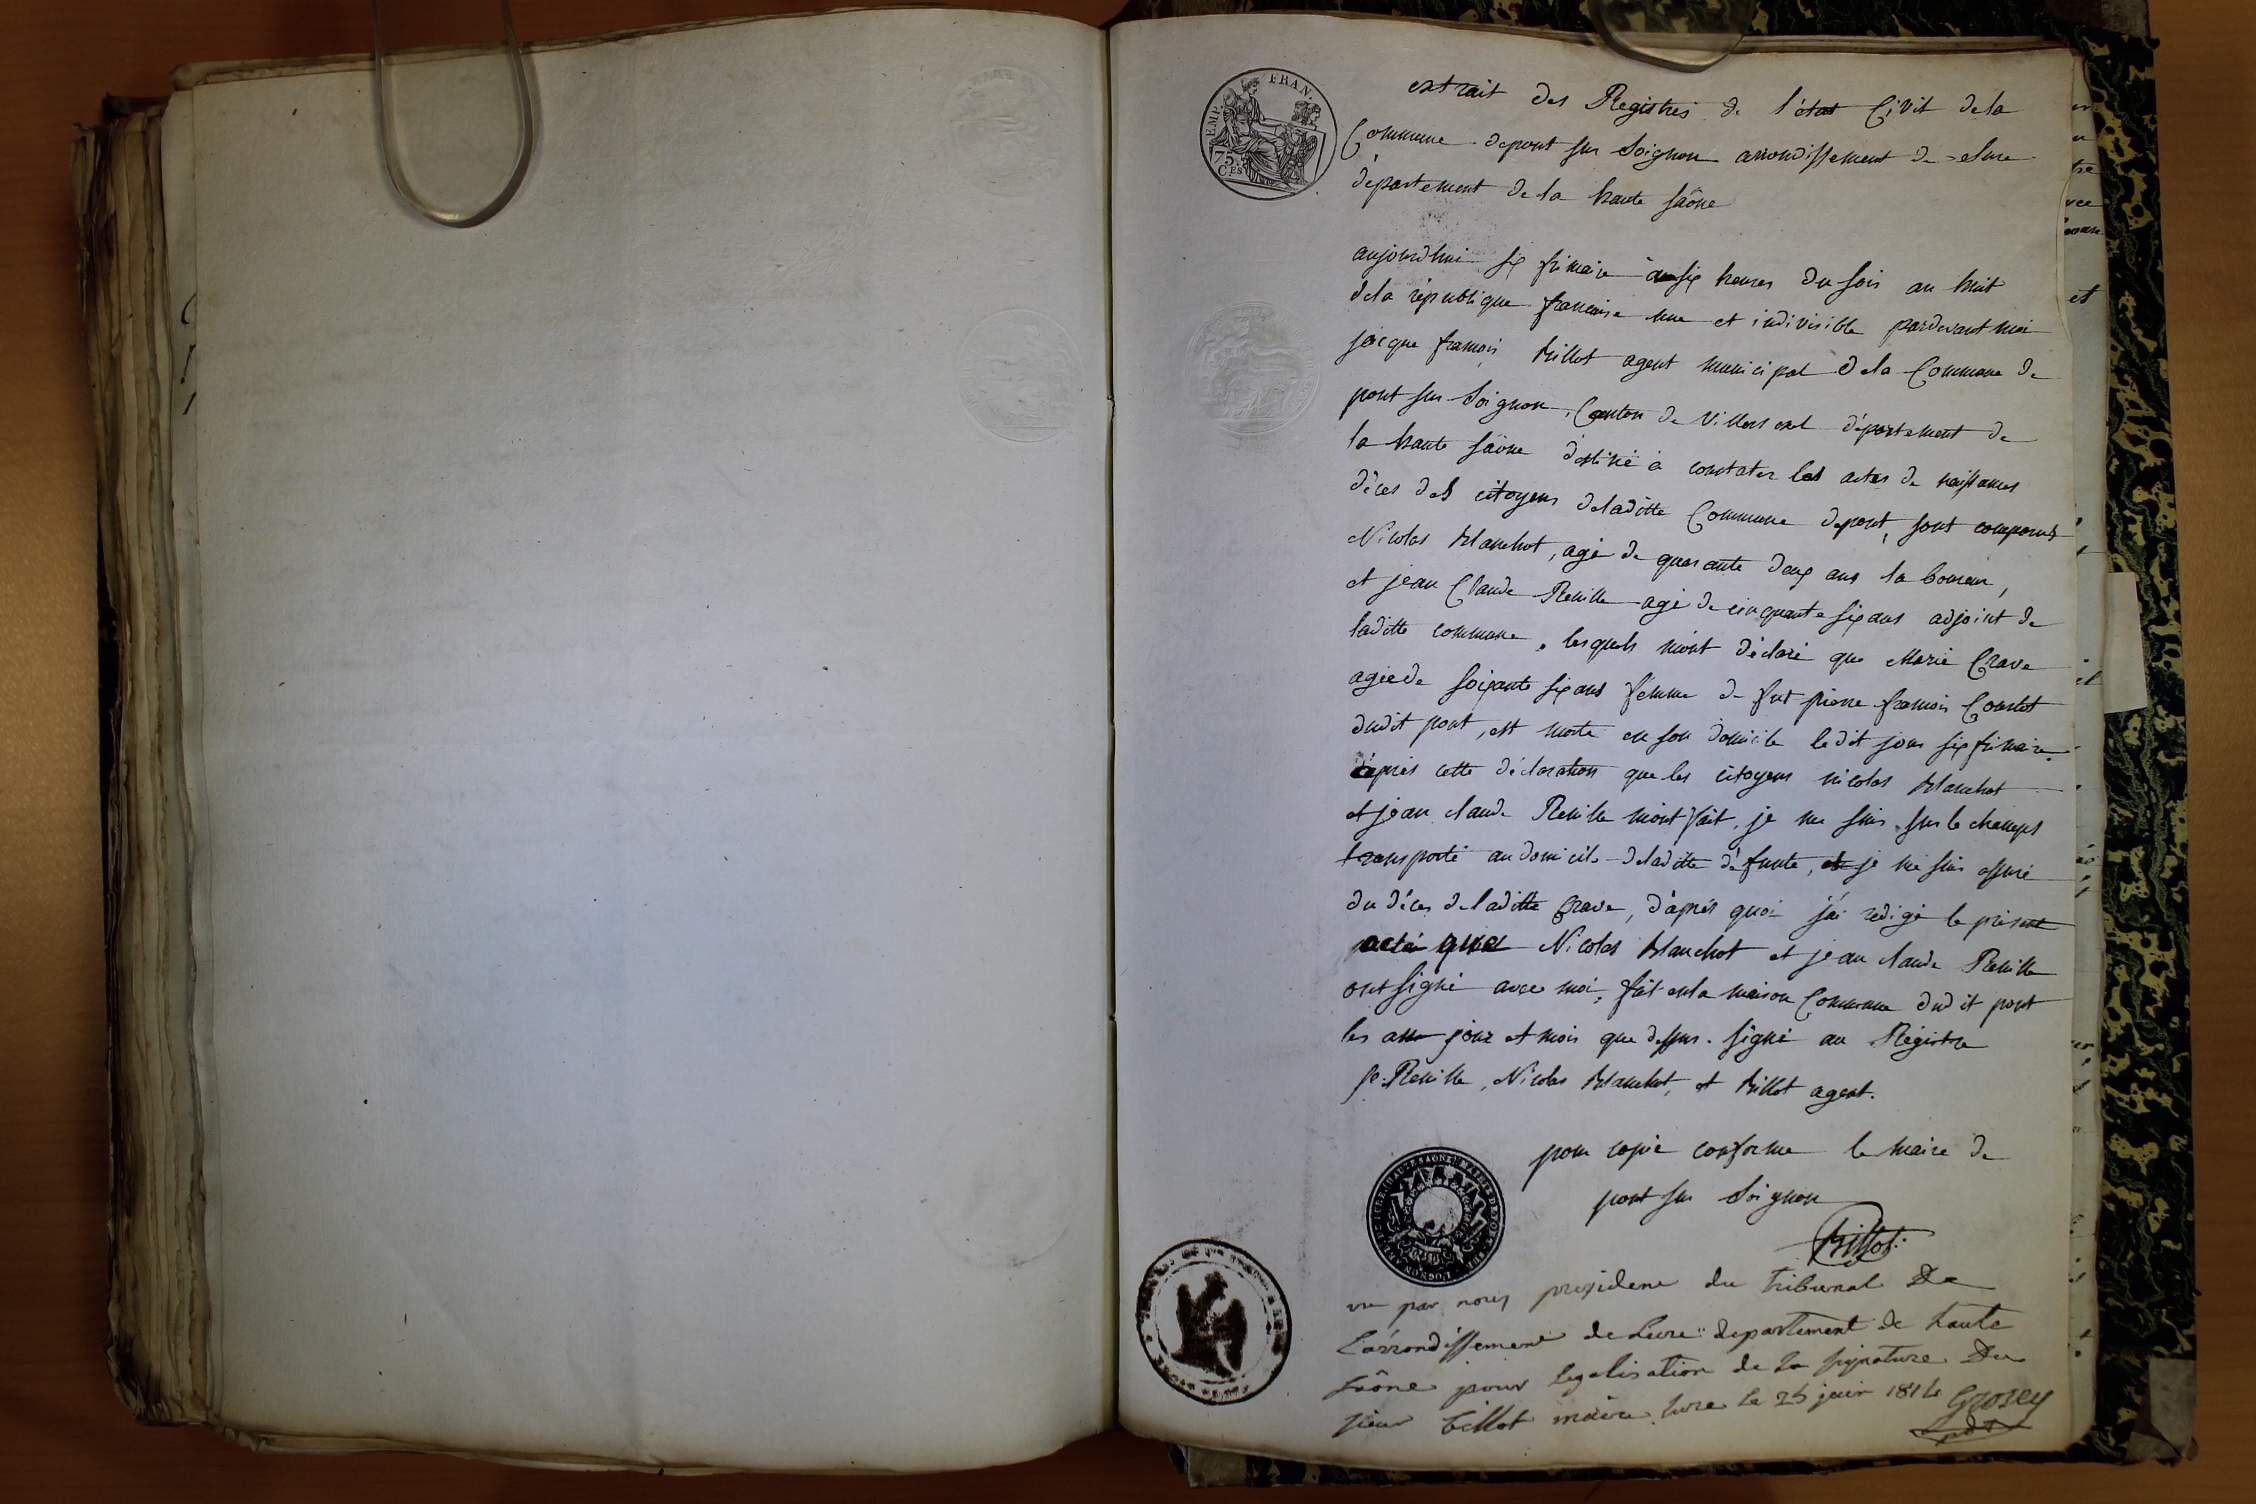 EMP. FRAN.
75.
CES
extrait des Registres de l'état Civil dela
Commune depont sur Loignon arrondissement de Lure
département de la haute saône
aujourdhui six frimaire à six heures du soir an huit
dela république francaise une et indivisible pardevant moi
jacque francois Billot agent municipal dela Commune de
pont sur Loignon, Canton de Villersexel département de
la haute saône déstiné à constater les actes de naissances
déces des citoyens deladitte Commune depont, sont comparus
Nicolas Blanchot, agé de quarante deux ans
et jean Claude Reuille agé de cinquante six ans adjoint de
laditte commune, lesquels m'ont déclaré que Marie Crave
agée de soixante six ans femme de fut pierre francois Courtot
dudit pont, est morte en son domicile ledit jour six frimaire.
d'après cette déclaration que les citoyens nicolas Blanchot
et jean claude Reuille m'ont fait, je me suis sur le champs
transporté au domicile deladitte défunte, je me suis assuré
du déces deladitte Crave, d'après quoi j'ai redigé le présent
acte que Nicolas Blanchot et jean claude Reuille
ont signé avec moi, fait enla maison Commune dudit pont
les an jour et mois que dessus. signé au Régistre
Reuille, Nicolas Blanchot, et Billot agent.
pour copie conforme le maire de
pont sur Loignon
Billot
vu par nous president du tribunal De
L'arrondissement de Lure departement de haute
saône pour legalisation de la signature Du
sieur Billot maire. Lure le 25 juin 1814 Grosey
pdt